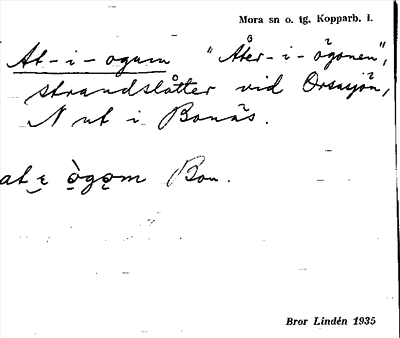 Mora sn o. tg. Kopparb. l.
At-i-ogum "Åter-i-ögonen",
strandslåtter vid Orsasjön,
N ut i Bonäs.
at i ògọm Bon.
Bror Lindén 1935